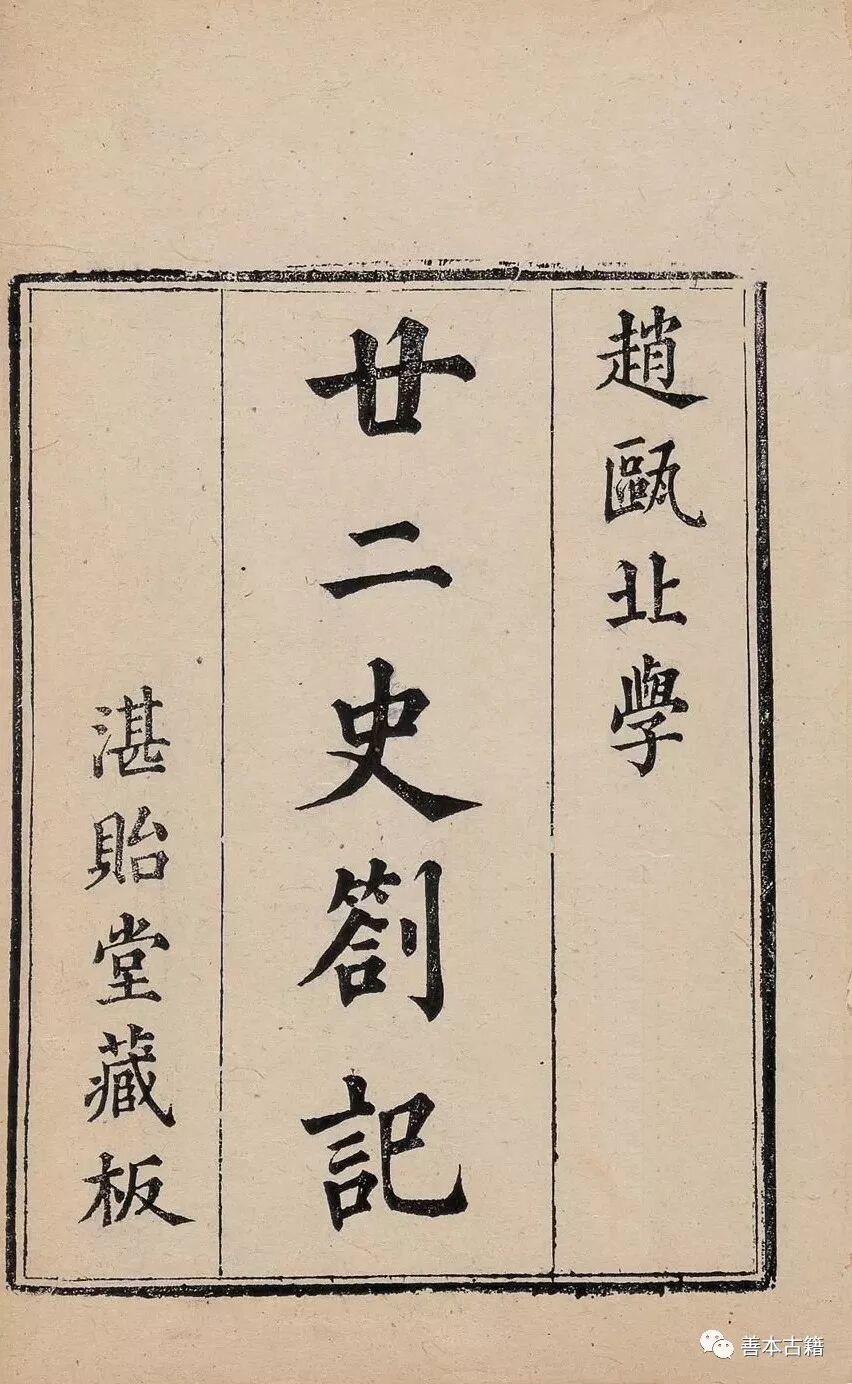 趙甌北學
廿二史劄記
湛貽堂藏板
善本古籍